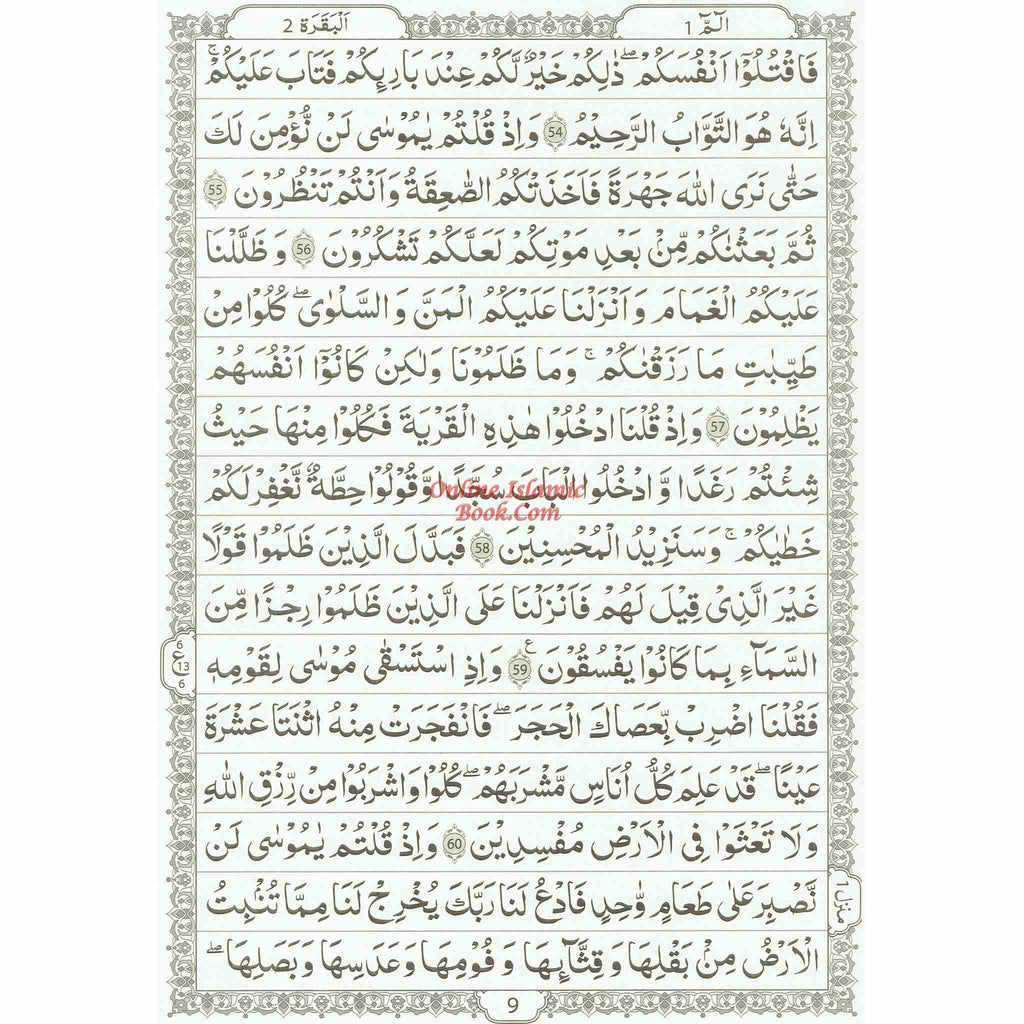 الٓمّٓ 1
اَلْبَقَرَة 2
فَاقْتُلُوْٓا اَنْفُسَكُمْ ؕ ذٰلِكُمْ خَيْرٌ لَّكُمْ عِنْدَ بَارِئِكُمْ فَتَابَ عَلَيْكُمْ ؕ
اِنَّهٗ هُوَ التَّوَّابُ الرَّحِيْمُ 54 وَاِذْ قُلْتُمْ يٰمُوْسٰى لَنْ نُّؤْمِنَ لَكَ
حَتّٰى نَرَى اللّٰهَ جَهْرَةً فَاَخَذَتْكُمُ الصّٰعِقَةُ وَاَنْتُمْ تَنْظُرُوْنَ 55
ثُمَّ بَعَثْنٰكُمْ مِّنْۢ بَعْدِ مَوْتِكُمْ لَعَلَّكُمْ تَشْكُرُوْنَ 56 وَ ظَلَّلْنَا
عَلَيْكُمُ الْغَمَامَ وَاَنْزَلْنَا عَلَيْكُمُ الْمَنَّ وَ السَّلْوٰى ۖ كُلُوْا مِنْ
طَيِّبٰتِ مَا رَزَقْنٰكُمْ ۚ وَمَا ظَلَمُوْنَا وَلٰكِنْ كَانُوْٓا اَنْفُسَهُمْ
يَظْلِمُوْنَ 57 وَاِذْ قُلْنَا ادْخُلُوْا هٰذِهِ الْقَرْيَةَ فَكُلُوْا مِنْهَا حَيْثُ
شِئْتُمْ رَغَدًا وَّ ادْخُلُوا الْبَابَ سُجَّدًا وَّقُوْلُوْا حِطَّةٌ نَّغْفِرْ لَكُمْ
Online Islamic
Book.Com
خَطٰيٰكُمْ ۚ وَسَنَزِيْدُ الْمُحْسِنِيْنَ 58 فَبَدَّلَ الَّذِيْنَ ظَلَمُوْا قَوْلًا
غَيْرَ الَّذِىْ قِيْلَ لَهُمْ فَاَنْزَلْنَا عَلَى الَّذِيْنَ ظَلَمُوْا رِجْزًا مِّنَ
السَّمَآءِ بِمَا كَانُوْا يَفْسُقُوْنَ 59 ع وَاِذِ اسْتَسْقٰى مُوْسٰى لِقَوْمِهٖ
٥ ع 13 6
فَقُلْنَا اضْرِبْ بِّعَصَاكَ الْحَجَرَ ۖ فَانْفَجَرَتْ مِنْهُ اثْنَتَا عَشْرَةَ
عَيْنًا ۖ قَدْ عَلِمَ كُلُّ اُنَاسٍ مَّشْرَبَهُمْ ۖ كُلُوْا وَاشْرَبُوْا مِنْ رِّزْقِ اللّٰهِ
وَلَا تَعْثَوْا فِى الْاَرْضِ مُفْسِدِيْنَ 60 وَاِذْ قُلْتُمْ يٰمُوْسٰى لَنْ
نَّصْبِرَ عَلٰى طَعَامٍ وَّاحِدٍ فَادْعُ لَنَا رَبَّكَ يُخْرِجْ لَنَا مِمَّا تُنْۢبِتُ
منزل 1
الْاَرْضُ مِنْۢ بَقْلِهَا وَ قِثَّآئِهَا وَ فُوْمِهَا وَعَدَسِهَا وَ بَصَلِهَا ۖ
9